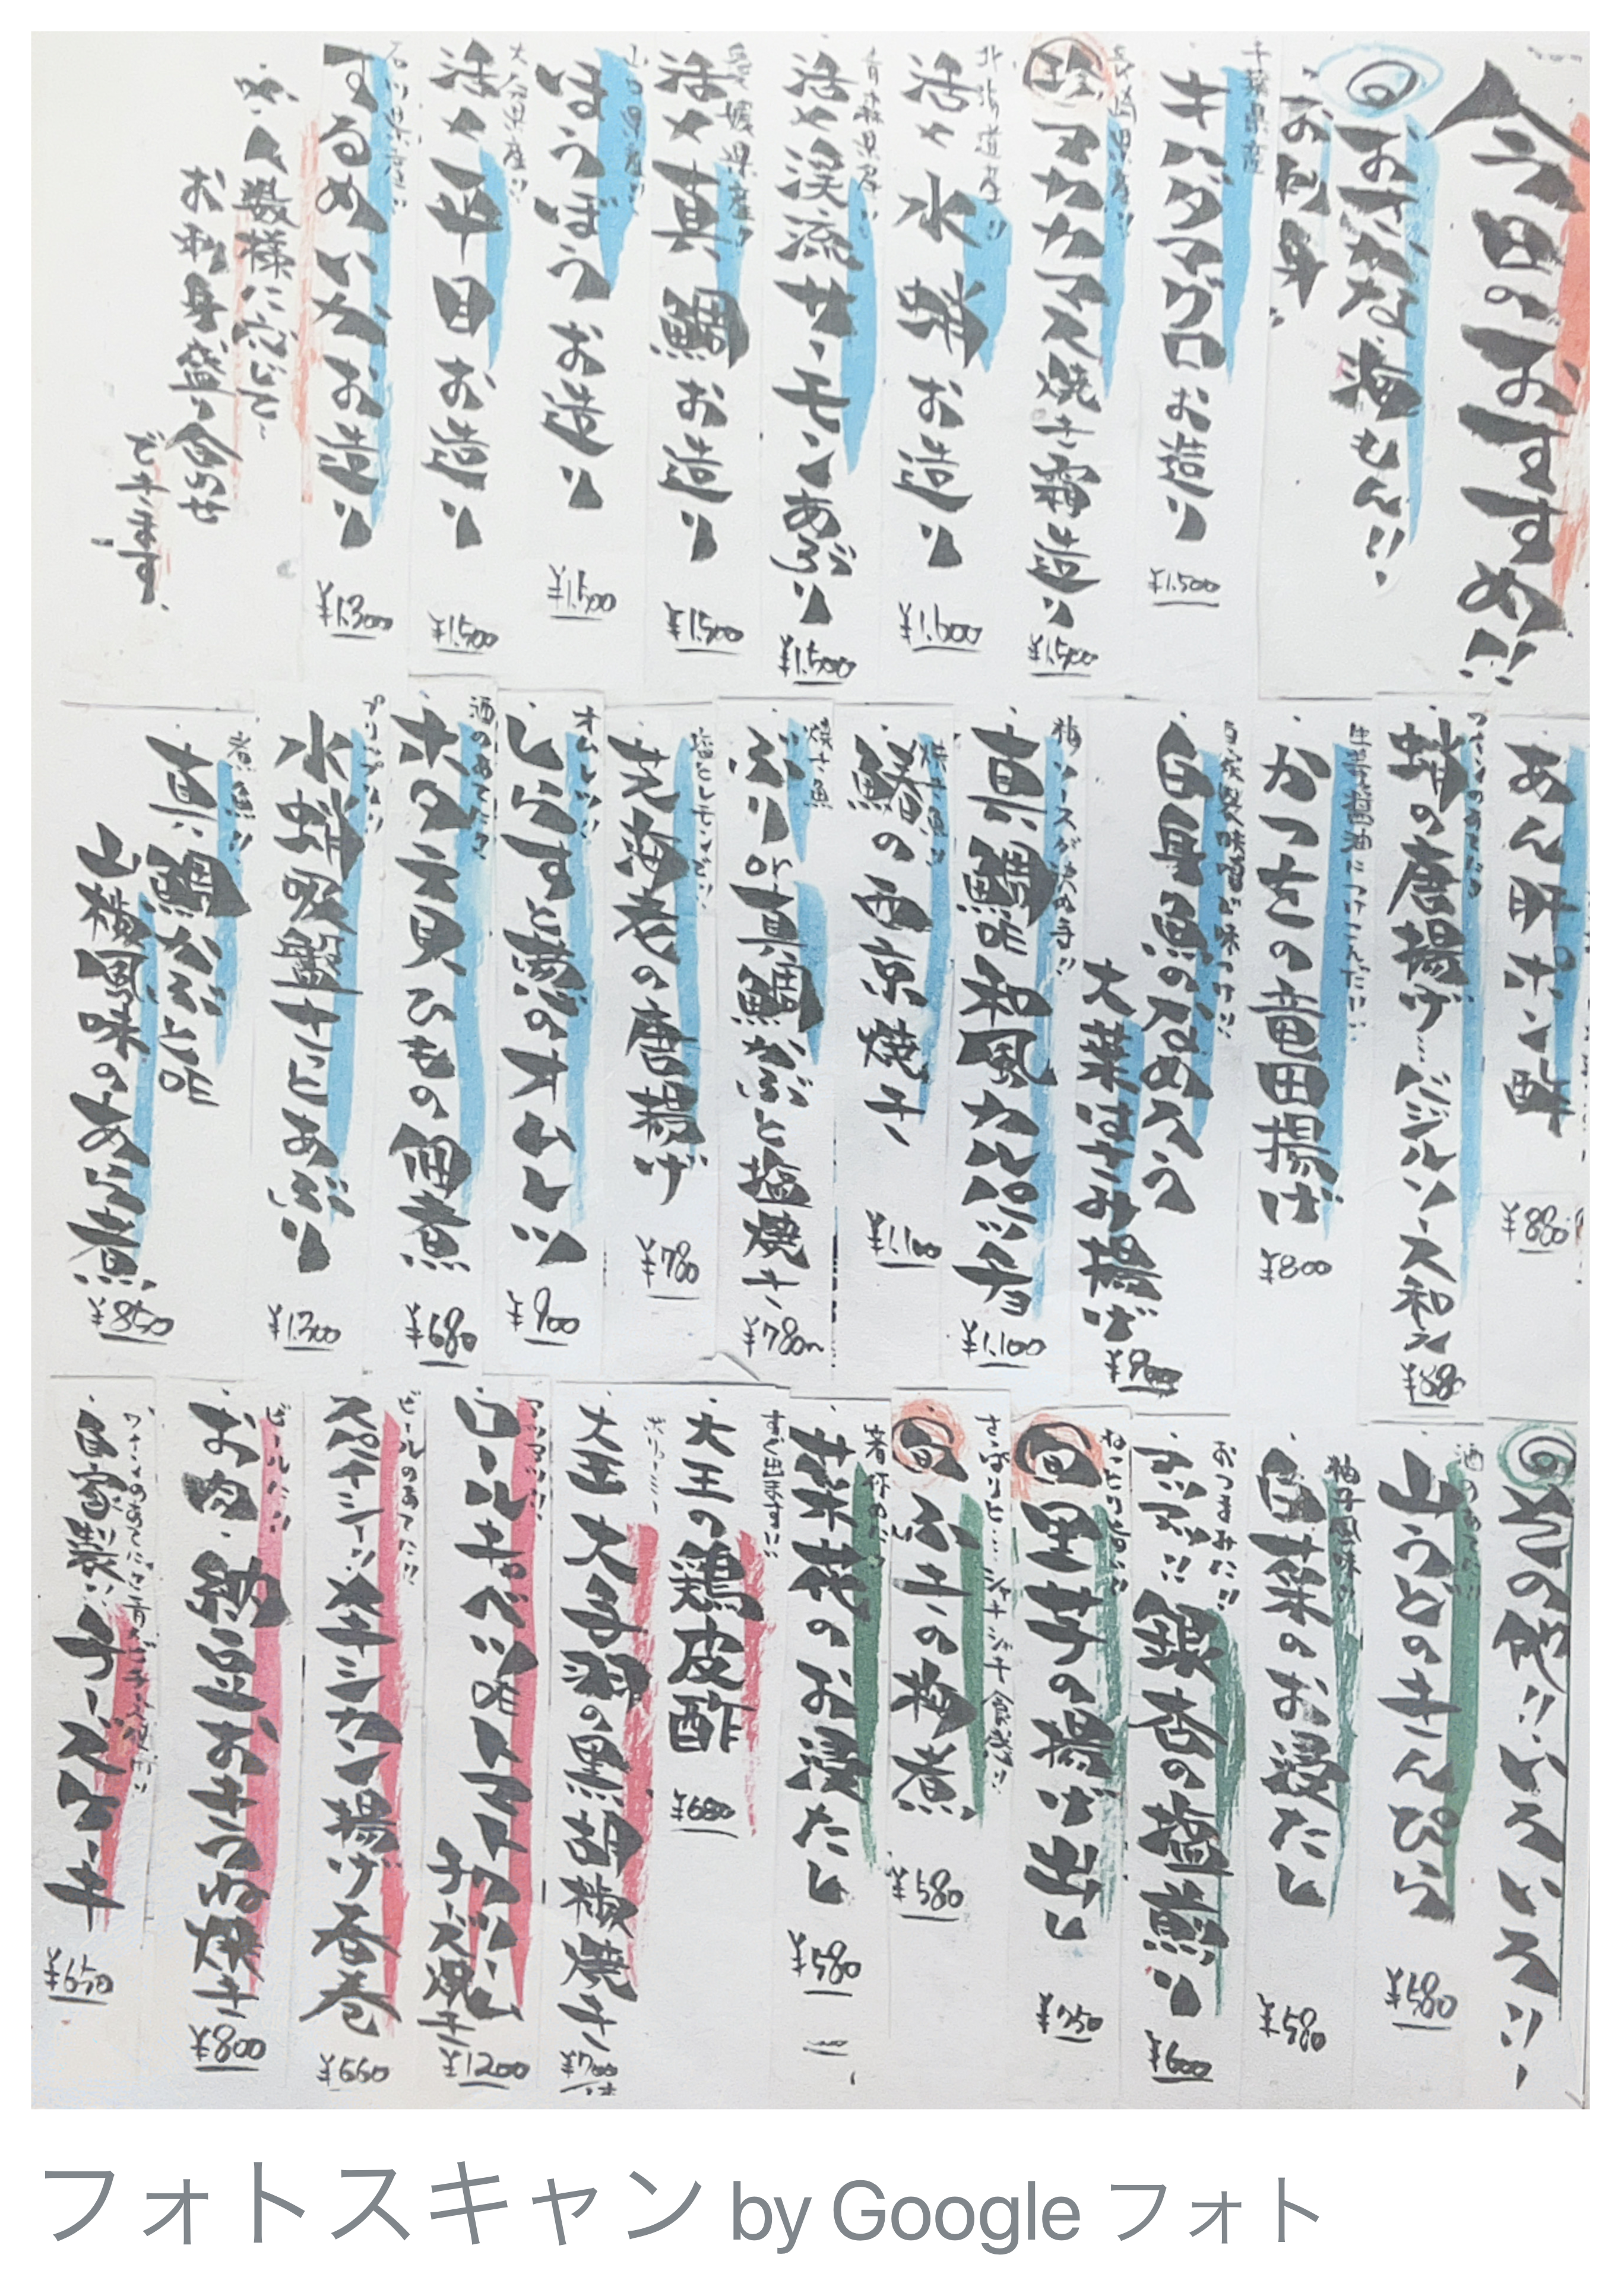 今日のおすすめ!!
おさかな・海もん!!
お刺身
千葉県産
キハダマグロお造り
¥1,500
長崎県産!!
珍
アカカマス焼き霜造り
¥1,500
北海道産!!
活々水蛸お造り
¥1,600
青森県産!!
活々渓流サーモンあぶり
¥1,500
愛媛県産!!
活々真鯛お造り
¥1,500
山口県産!!
ほうぼうお造り
¥1,500
大分県産!!
活々平目お造り
¥1,500
石川県産!!
するめいかお造り
¥1,300
人数様に応じて
お刺身盛り合わせ
できます。
あん肝ポン酢
¥880
蛸の唐揚げ…バジルソース和え
¥880
生姜醤油につけこんだ!!
かつをの竜田揚げ
¥800
白身魚のなめろう
大葉はさみ揚げ
¥900
梅ソースが決め手!!
真鯛の和風カルパッチョ
¥1,100
焼き魚!!
鰆の西京焼き
¥1,100
焼き魚
ぶり or 真鯛かぶと塩焼き
¥780~
塩とレモンで!!
芝海老の唐揚げ
¥780
オムレツ!!
しらすと葱のオムレツ
¥900
酒のあてに
ホタテ貝ひもの佃煮
¥680
プリプリ!!
水蛸吸盤さっとあぶり
¥1,300
煮魚!!
真鯛かぶとの
山椒風味のあら煮
¥850
その他!!いろいろ!!
酒のあてに!!
山うどのきんぴら
¥580
柚子風味!!
白菜のお浸たし
¥580
おつまみに!!
アツアツ!!銀杏の塩煎り
¥600
ねっとり旨い!!
旬
里芋の揚げ出し
¥750
さっぱりと…シャキシャキ食感!!
旬
ふきの梅煮
¥580
箸休めに!!
菜花のお浸たし
¥580
すぐ出ます!!
大王の鶏皮酢
¥680
大王大手羽の黒胡椒焼き
¥700
アツアツ!!
ロールキャベツのトマトクリーム
チーズ焼き
¥1200
ビールのあてに!!
スパイシー!!メキシカン揚げ春巻
¥660
ビールに!!
お肉・納豆おきつね焼き
¥800
自家製!!チーズケーキ
¥650
フォトスキャン by Google フォト